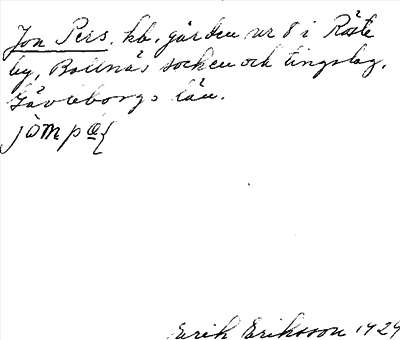 Jon Pers. kb. gården nr 8 i Röste
by, Bollnäs socken och tingslag,
Gävleborgs län.
Erik Eriksson 1924